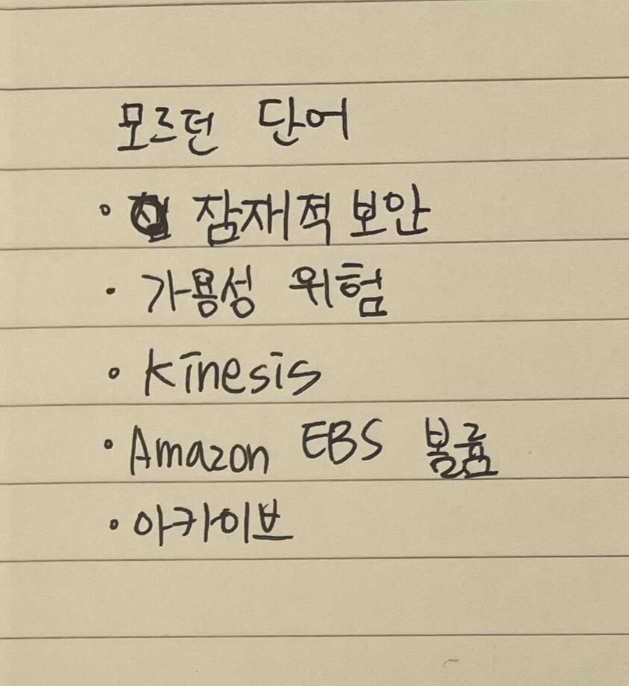 모르던 단어
• 잠재적 보안
• 가용성 위험
• Kinesis
• Amazon EBS 볼륨
• 아카이브